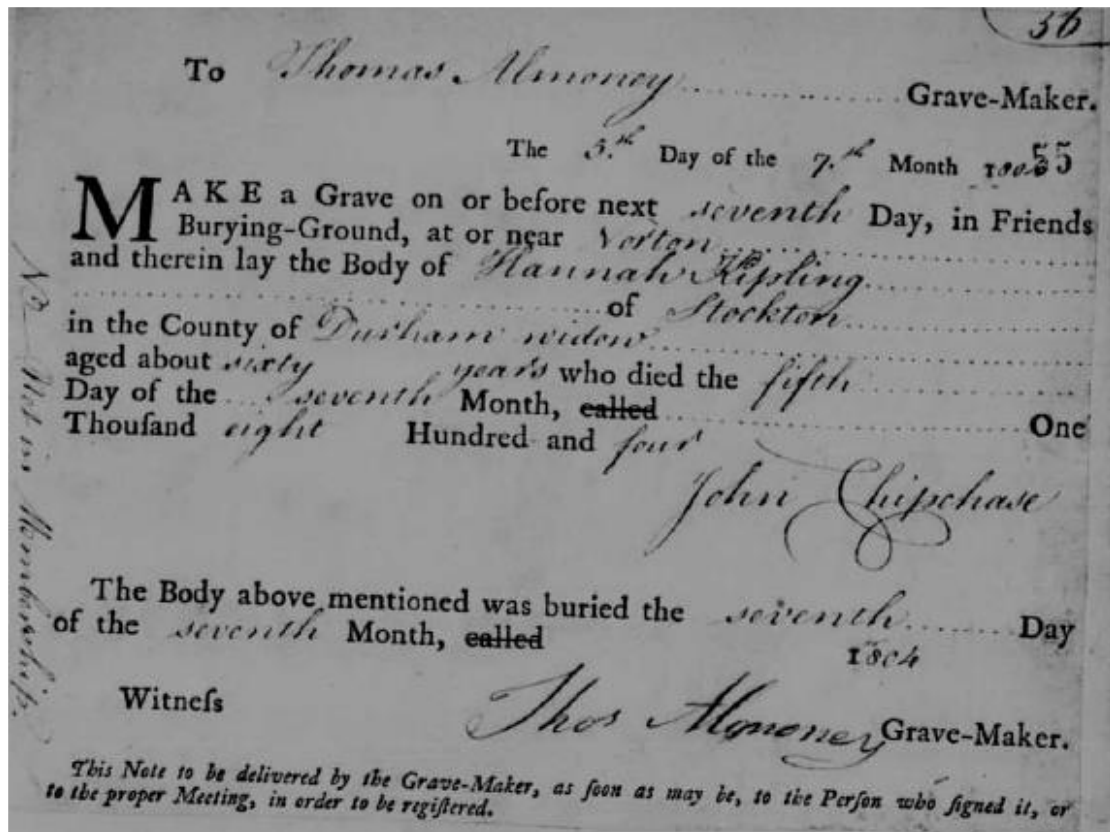 36
To Thomas Almoney Grave-Maker.
The 5.th Day of the 7.th Month 180 55
MAKE a Grave on or before next seventh Day, in Friends
Burying-Ground, at or near Norton
and therein lay the Body of Hannah Kipling
of Stockton
in the County of Durham widow
aged about sixty years who died the fifth
Day of the seventh Month, called One
Thouſand eight Hundred and four
John Chipchase
The Body above mentioned was buried the seventh Day
of the seventh Month, called 1804
Witneſs Thos Almoney Grave-Maker.
This Note to be delivered by the Grave-Maker, as ſoon as may be, to the Perſon who ſigned it, or
to the proper Meeting, in order to be regiſtered.
No Not in Membership.